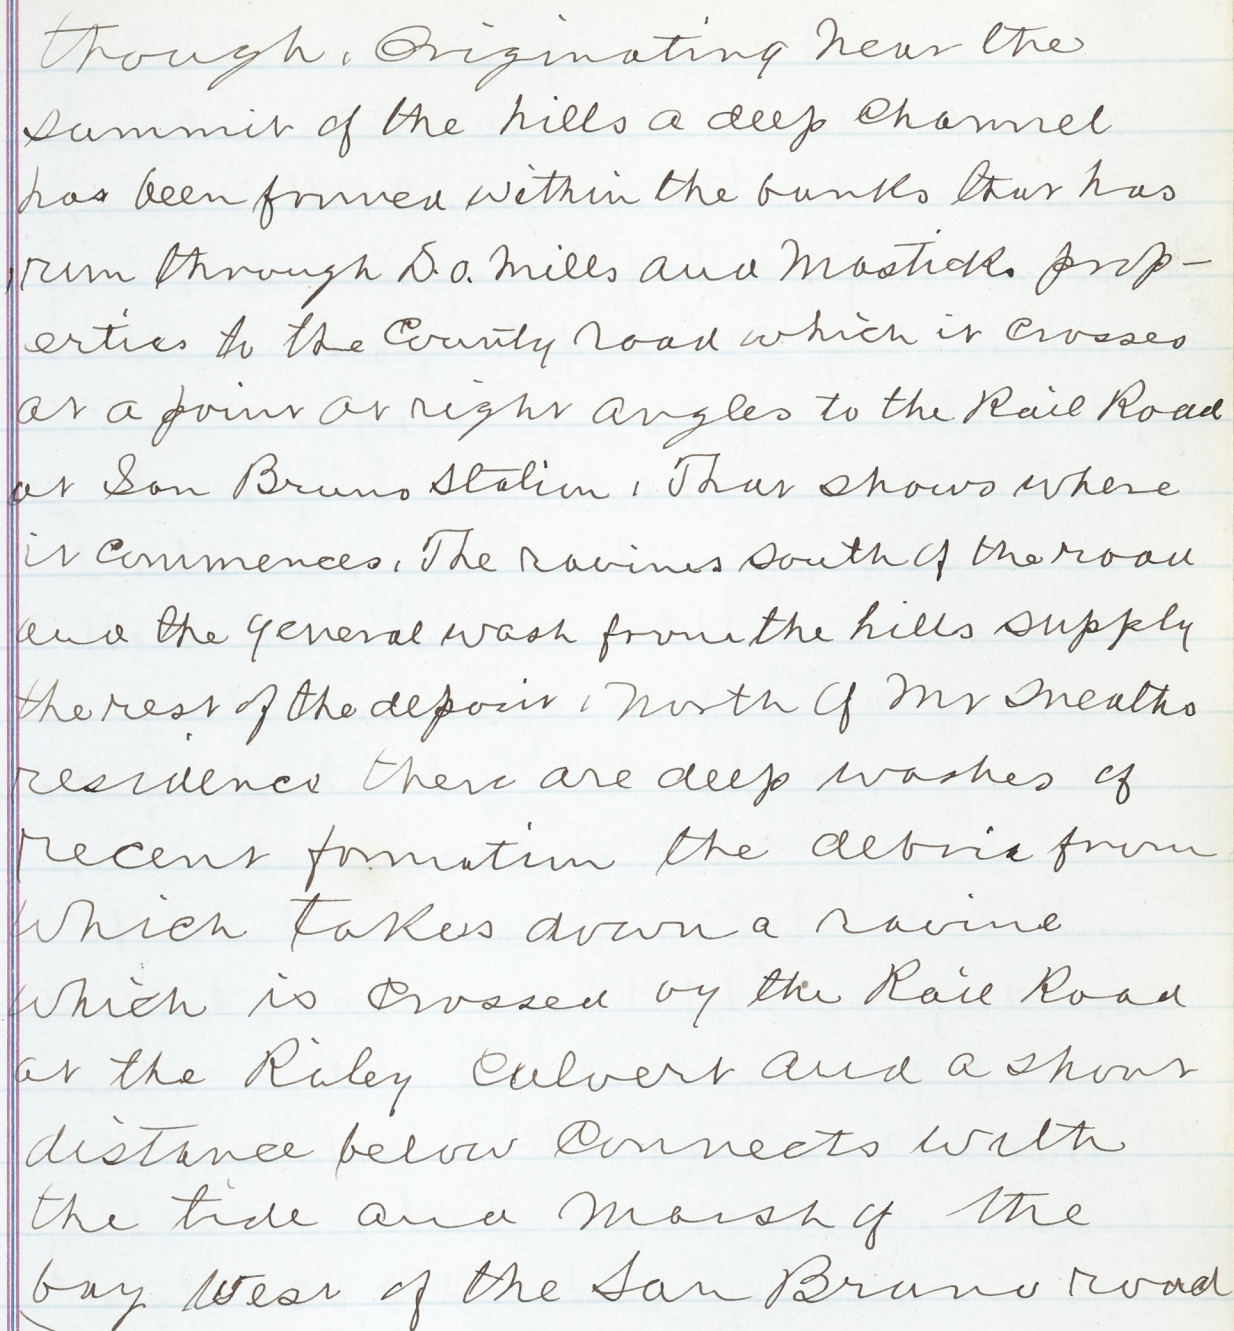 though. Originating near the
summit of the hills a deep Channel
has been formed within the banks that has
run through D.O. Mills and Masticks prop-
erties to the County road which it crosses
at a point at right angles to the Rail Road
at San Bruno Station. That shows where
it Commences. The ravines south of the road
and the general wash from the hills supply
the rest of the deposit. North of Mr Sneaths
residence there are deep washes of
recent formation the debris from
which takes down a ravine
which is Crossed by the Rail Road
at the Riley Culvert and a short
distance below Connects with
the tide and Marsh of the
bay West of the San Bruno road